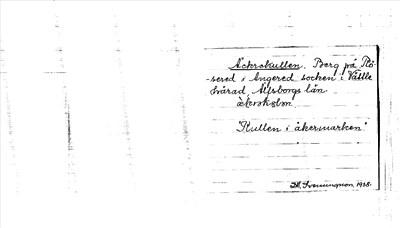 Åckrokullen. Berg på Rö-
sered i Angered socken i Vättle
härad, Älfsborgs län
åkərskəlm.
"Kullen i åkermarken"
1928.